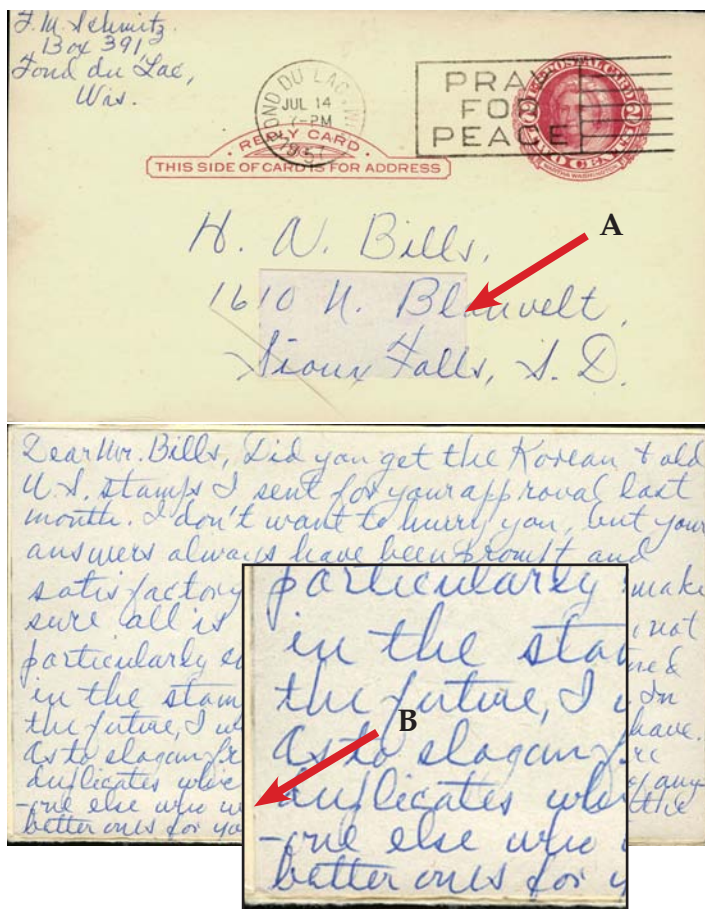 F. M. Schmitz
Box 391
Fond du Lac,
Wis.
FOND DU LAC, WIS
JUL 14
7-PM
1957
PRAY
FOR
PEACE
U.S. POSTAL CARD
2 CTS 2 CTS
TWO CENTS
MARTHA WASHINGTON
REPLY CARD
THIS SIDE OF CARD IS FOR ADDRESS
H. N. Bills,
1610 N. Blauvelt,
Sioux Falls, S. D.
A
Dear Mr. Bills, Did you get the Korean & old
U.S. stamps I sent for your approval last
month. I don't want to hurry you, but your
answers always have been prompt and
satisfactory make
sure all is not
particularly
in the stam In
the future, I w have.
As to slogan
duplicates any
-one else who w the
better ones for yo
B
particularly
in the sta
the future, I
As to slogan
duplicates
-one else who
better ones for y